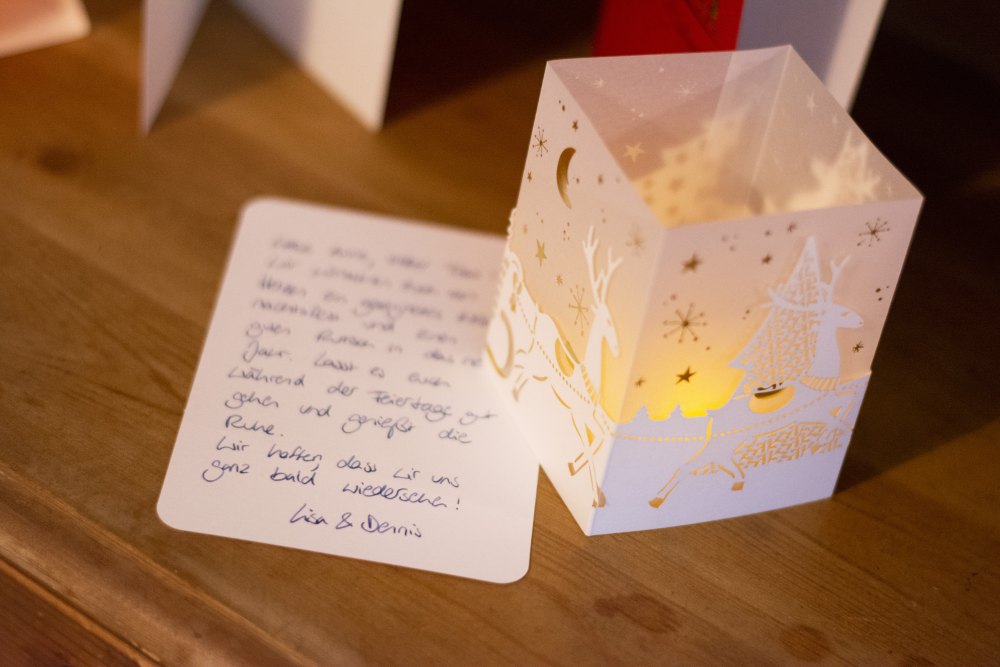 wir wünschen Euch von
Herzen ein gesegnetes
nachtsfest und einen
guten Rutsch in das
Jahr. Lasst es euch
während der Feiertage gut
gehen und genießt die
Ruhe.
Wir hoffen, dass wir uns
ganz bald wiedersehen!
Lisa & Dennis